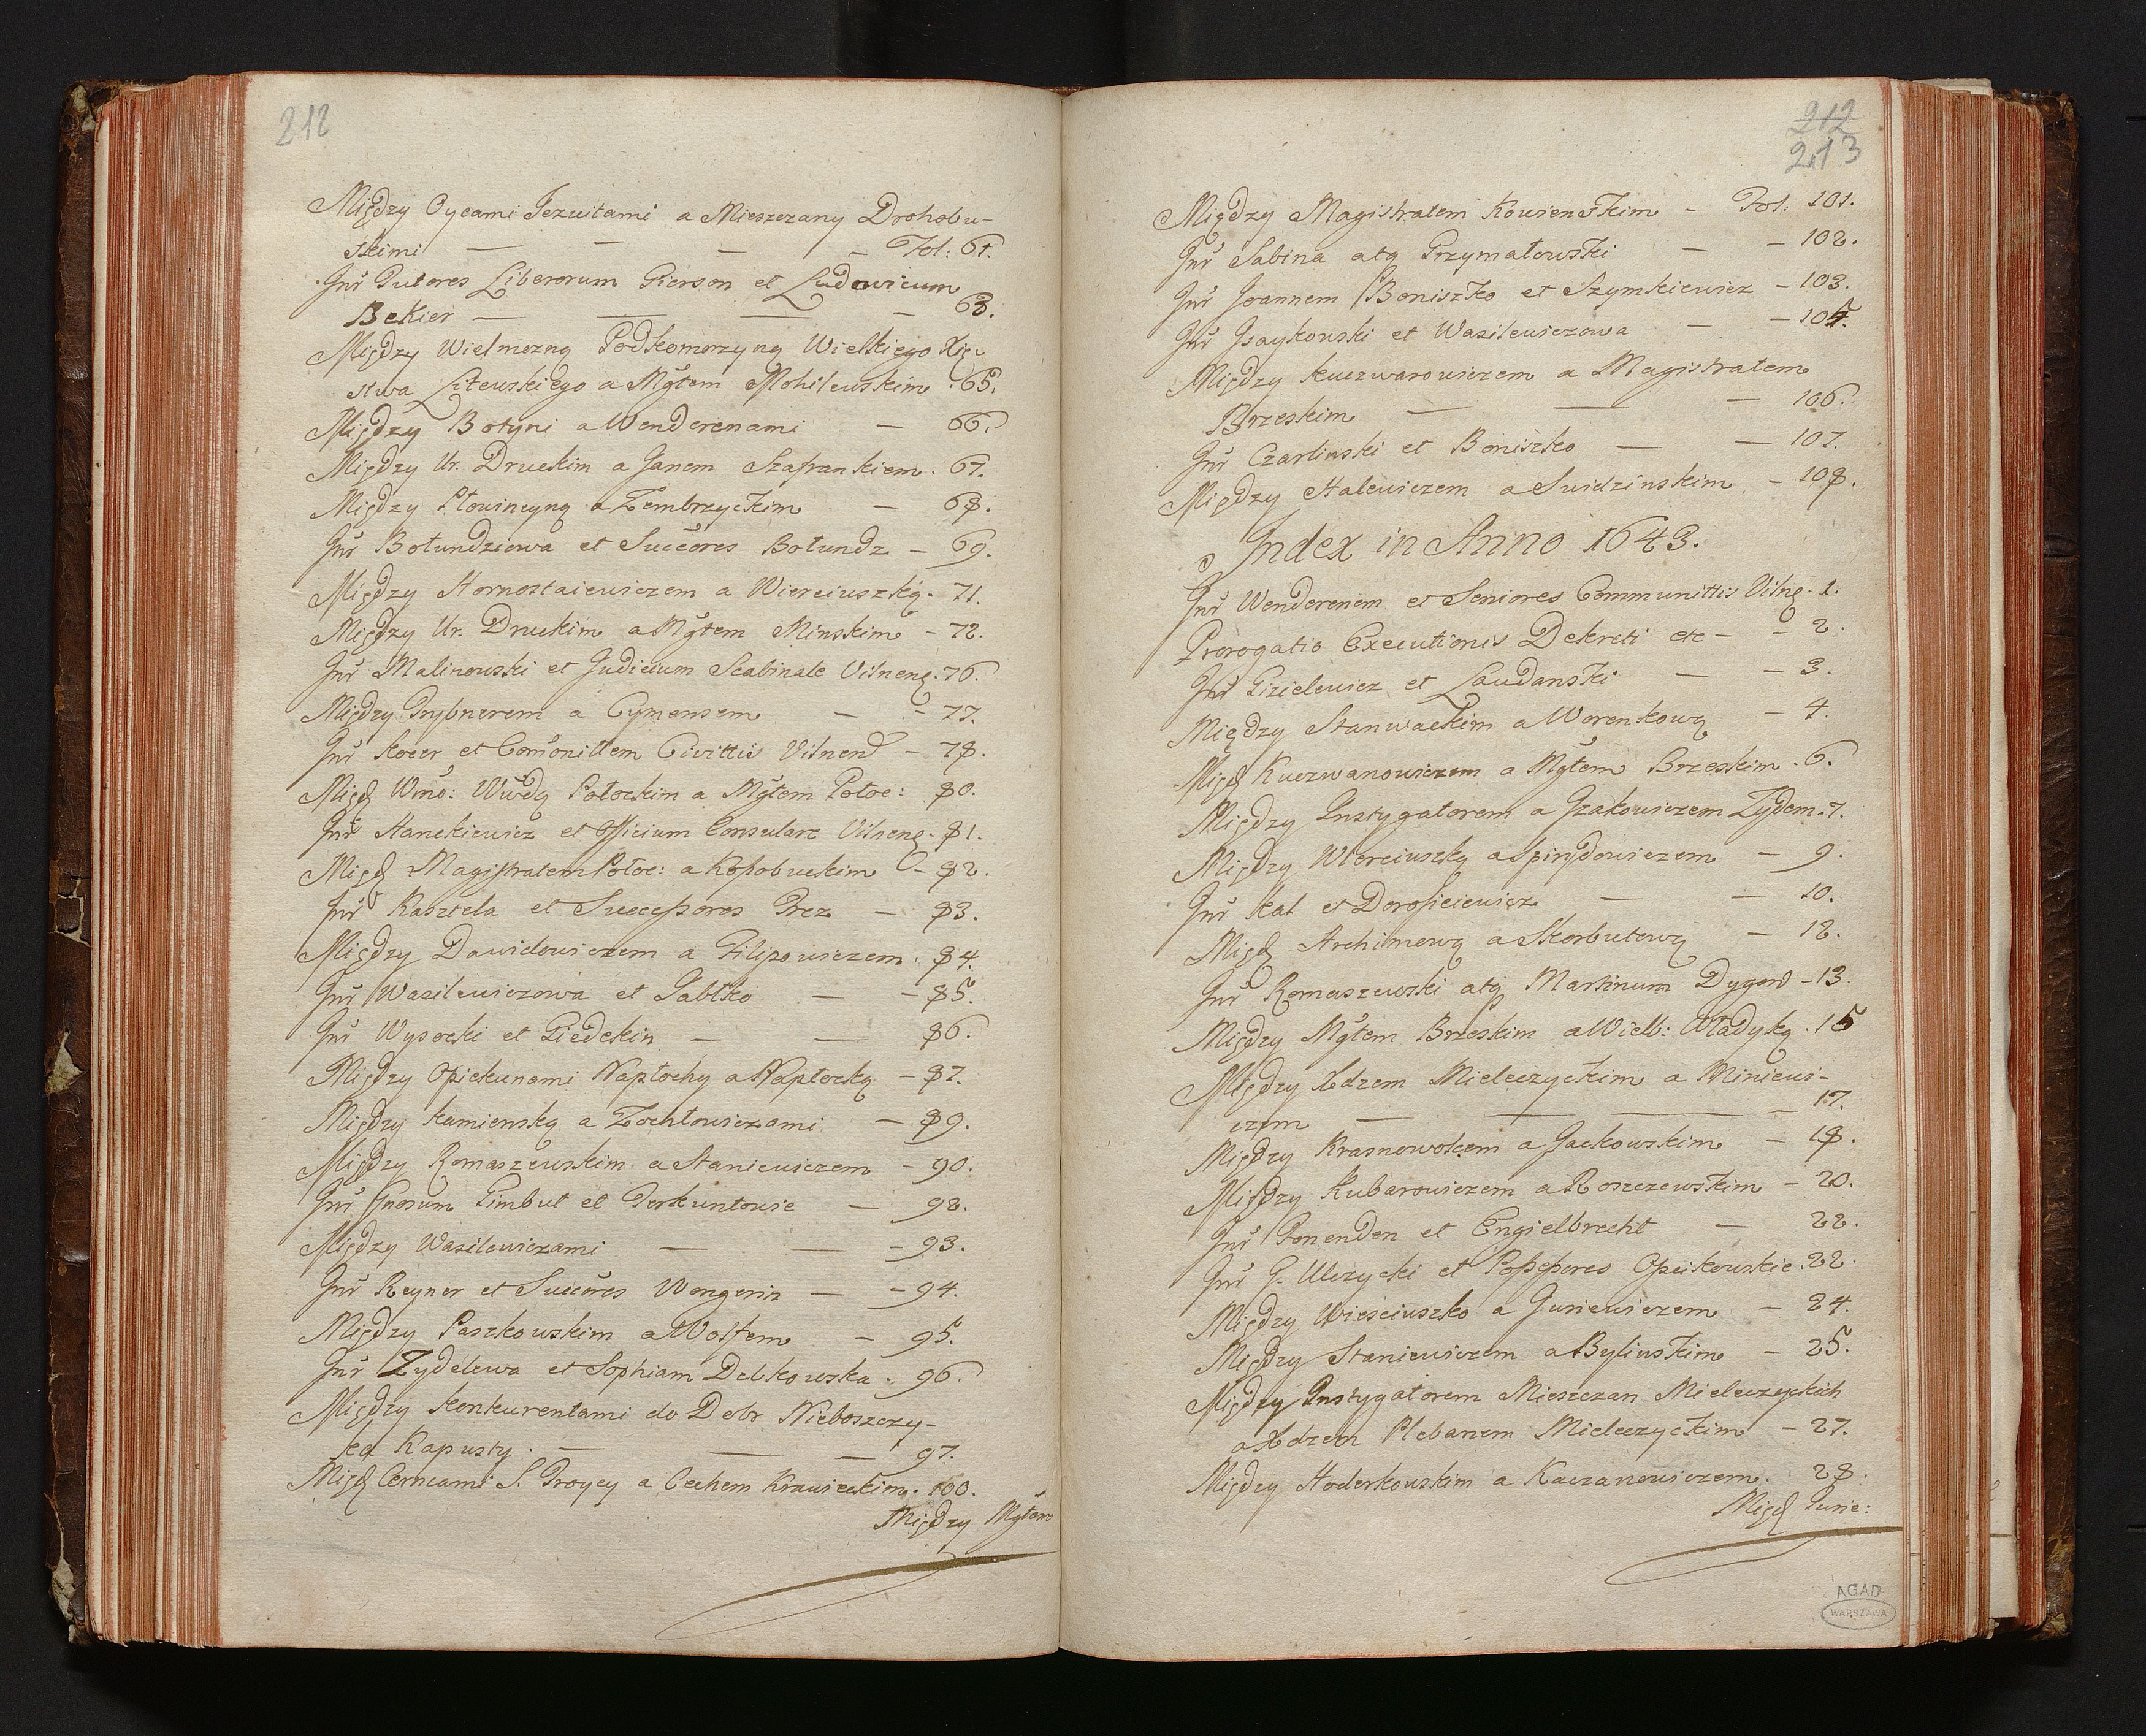 212
Między Oycami Jezuitami a Mieszczany Drohobu-
skimi — — — — Fol: 61.
Jnr Tutores Liberorum Gierson et Ludowicum
Bekier — — — — 63.
Między Wielmozną Podkomorzyną Wielkiego Xię
stwa Litewskiego a Mgtem Mohilewskim . 65.
Między Botyni a Wenderenami — 66.
Między Ur. Druckim a Janem Szafrankiem . 67.
Między Płowincyną a Zembrzyckim — 68.
Jnr Bołundziowa et Succores Bołundz — 69.
Między Hornostaiewiczem a Wierciuszką . 71.
Między Ur. Druckim a Mgtem Minskim — 72.
Jnr Malinowski et Judicium Scabinale Vilneng . 76.
Między Trybnerem a Cymensem — — 77.
Jnr Kocer et Comonittem Civittis Vilnend — 78.
Migd Wmo: Wwdą Połockim a Mgtem Połoc: 80.
Jnr Hanckiewicz et Officium Consulare Vilneng . 81.
Migd Magistratem Połoc: a Kossobuckim — 82.
Jnr Kasztela et Successores Prez — 83.
Między Dawidowiczem a Filipowiczem . 84.
Jnr Wasilewiczowa et Jabłko — — 85.
Jnr Wysocki et Giedekin — — 86.
Między Opiekunami Napłochy a Napłocką — 87.
Między Kamienską a Zochłowiczami — 89.
Między Romaszewskim a Staniewiczem — 90.
Jnr Gnosum Gimbut et Perkuntowie — 92.
Między Wasilewiczami — — — 93.
Jnr Reyner et Succores Wengerin — — 94.
Między Paszkowskim a Wolfem — 95.
Jnr Zydelewa et Sophiam Debkowska . 96.
Między Konkurentami do Dobr Nieboszczy-
ka Kapusty . — — — 97.
Migd Cerncami S. Troycy a Cechem Krawieckim . 100.
Między Mgtem
212
213
Między Magistratem Kowienskim — Fol: 101.
Jnr Sabina atq Przymałowski — — 102.
Jnr Joannem Boniszko et Szymkiewicz — 103.
Jnr Jsaykowski et Wasilewiczowa — — 104.
Między Kuczwarowiczem a Magistratem
Brzeskim — — — 106.
Jnr Czarlinski et Boniszko — — 107.
Między Halewiczem a Swidzinskim — 108.
Index in Anno 1643.
Jnr Wenderenem et Seniores Communittis Vilng . 1.
Prorogatio Executionis Dekreti etc — — 2.
Jnr Gizielewicz et Laudanski — — 3.
Między Stanwackim a Worenkową — 4.
Migd Kuczwanowiczem a Mgtem Brzeskim . 6.
Między Jnstygatorem a Jzakowiczem Zydem . 7.
Między Wierciuszką a Spirydowiczem — 9.
Jnr Kal et Doroficiewicz — — 10.
Migd Archimową a Skorbutową — 12.
Jnr Romaszewski atq Martinum Dygon — 13.
Między Mgtem Brzeskim a Wielb: Władyką . 15
Między Xdzem Mielczyckim a Miniewi-
czem — — — — 17.
Między Krasnowolcem a Jackowskim — 18.
Między Kubarowiczem a Roszczewskim — 20.
Jnr Fonenden et Engielbrecht — 22.
Jnr G. Ulczycki et Possessores Opeikowskie . 22.
Między Wiesciuszko a Guriewiczem — 24.
Między Staniewiczem a Bylinskim — 25.
Między Instygatorem Mieszczan Mielczyckich
a Xdzem Plebanem Mielczyckim — 27.
Między Hoderkowskim a Kaczanowiczem . 28.
Migd Gurie:
AGAD
WARSZAWA